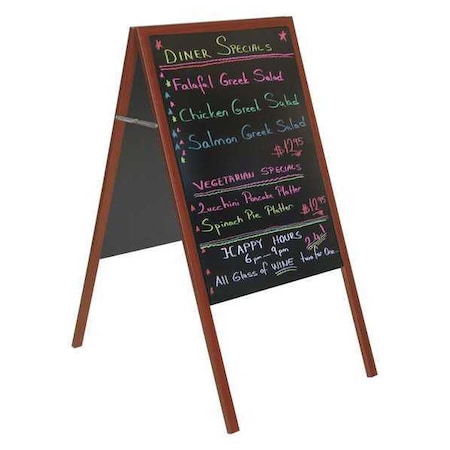 DINER SPECIALS
Falafal Greek Salad
Chicken Greek Salad
Salmon Greek Salad
$12.95
VEGETARIAN SPECIALS
Zucchini Pancake Platter
Spinach Pie Platter $12.95
HAPPY HOURS 2 4 1
6pm - 9pm
All Glass of WINE two for One